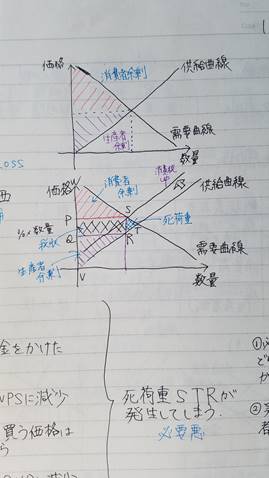 価格
消費者余剰
供給曲線
生産者
余剰
需要曲線
数量
Loss
価格
消費者
余剰
供給曲線
P
S
死荷重
数量
税収
Q
T
R
生産者
余剰
需要曲線
V
数量
金をかけた
PSに減少
買う価格は
死荷重STRが
発生してしまう.
必要悪